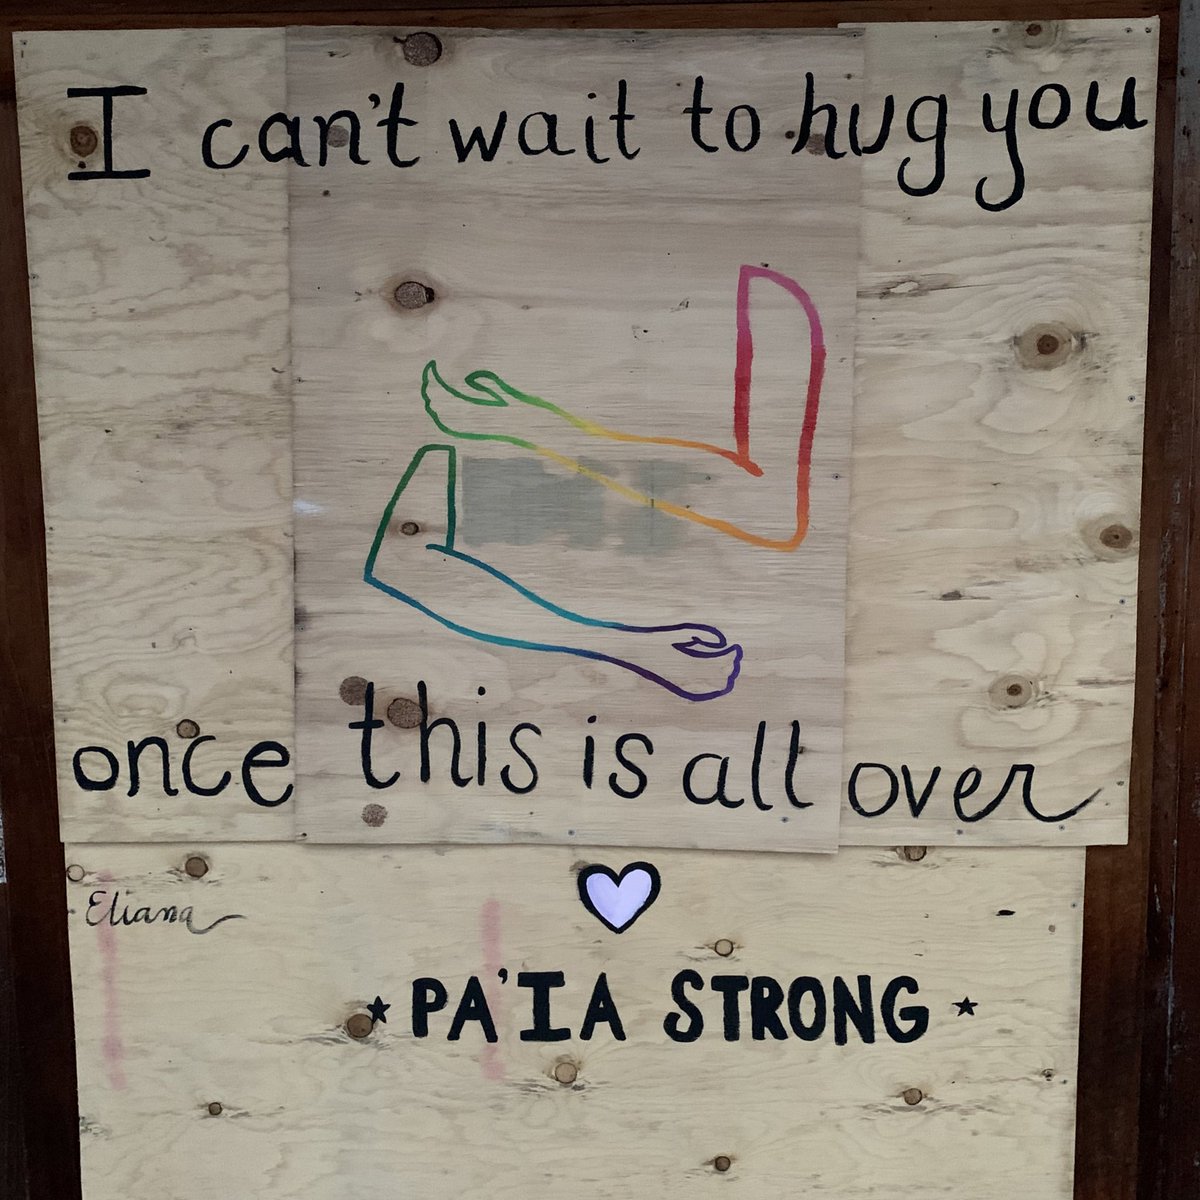 I can't wait to hug you
once this is all over
Eliana
PA'IA STRONG